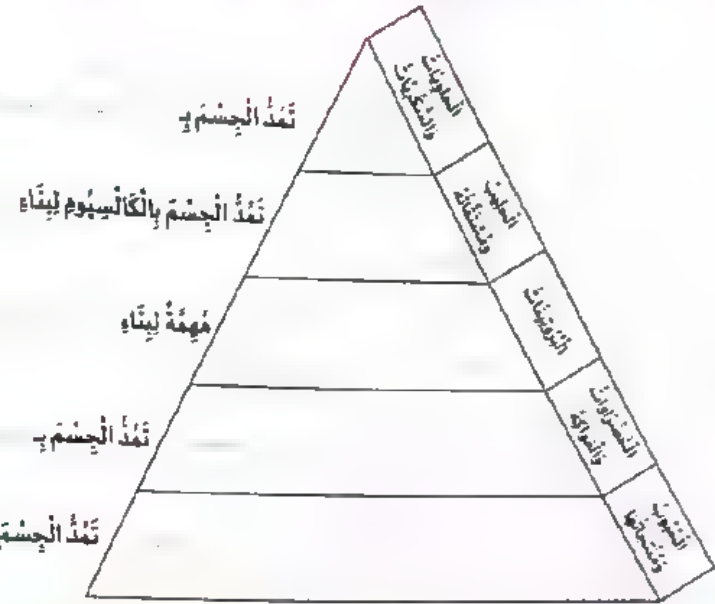 تَمُدُّ الْجِسْمَ بِ
تَمُدُّ الْجِسْمَ بِالْكَالْسِيُومِ لِبِنَاءِ
مُهِمَّةٌ لِبِنَاءِ
تَمُدُّ الْجِسْمَ بِـ
تَمُدُّ الْجِسْمَ
الْحَلَوِيَّاتُ
وَالسُّكَّرِيَّاتُ
الْحَلِيبُ
وَمُشْتَقَّاتُهُ
الْبُرُوتِينَاتُ
الْخَضْرَاوَاتُ
وَالْفَوَاكِهُ
الْحُبُوبُ
وَمُنْتَجَاتُهَا